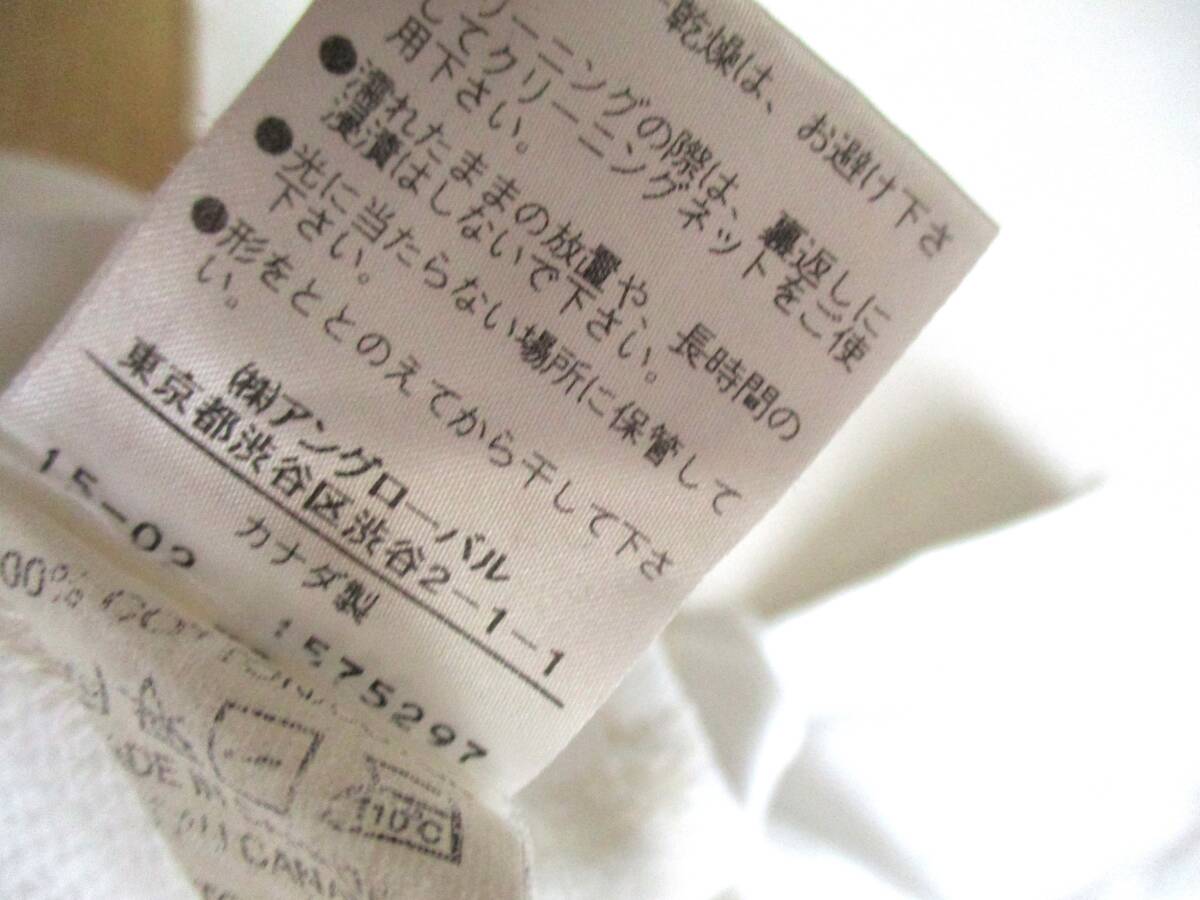 乾燥は、お避け下さ
リーニングの際は、裏返しに
してクリーニングネットをご使
用下さい。
●濡れたままの放置や、長時間の
浸漬はしないで下さい。
●光に当たらない場所に保管して
下さい。
●形をととのえてから干して下さ
い。
㈱アングローバル
東京都渋谷区渋谷2-1-1
カナダ製
15-02 1575297
00% COTTON
110°C